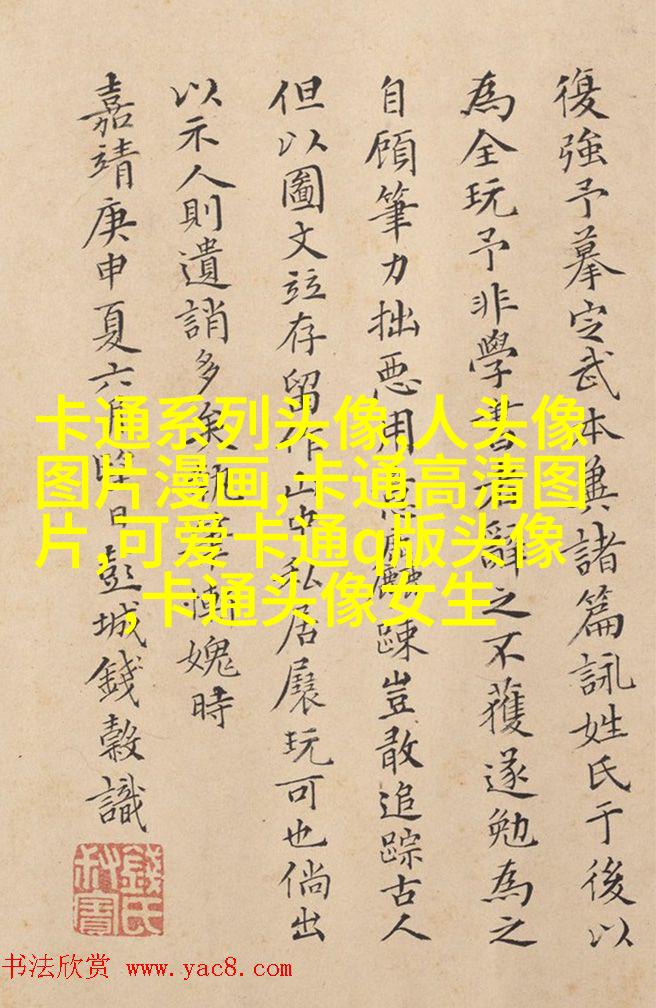 復強予摹定武本兼諸篇詠姓氏于後以
為全玩予非學書者辭之不獲遂勉為之
自顧筆力拙惡用意麤踈豈敢追踪古人
但以圖文竝存留作山中私居展玩可也倘出
以示人則遺誚多矣 慚媿時
嘉靖庚申夏六月 日彭城錢穀識
卡通系列头像,人头像
图片漫画,卡通高清图
片,可爱卡通q版头像
,卡通头像女生
錢氏
书法欣赏 www.yac8.com